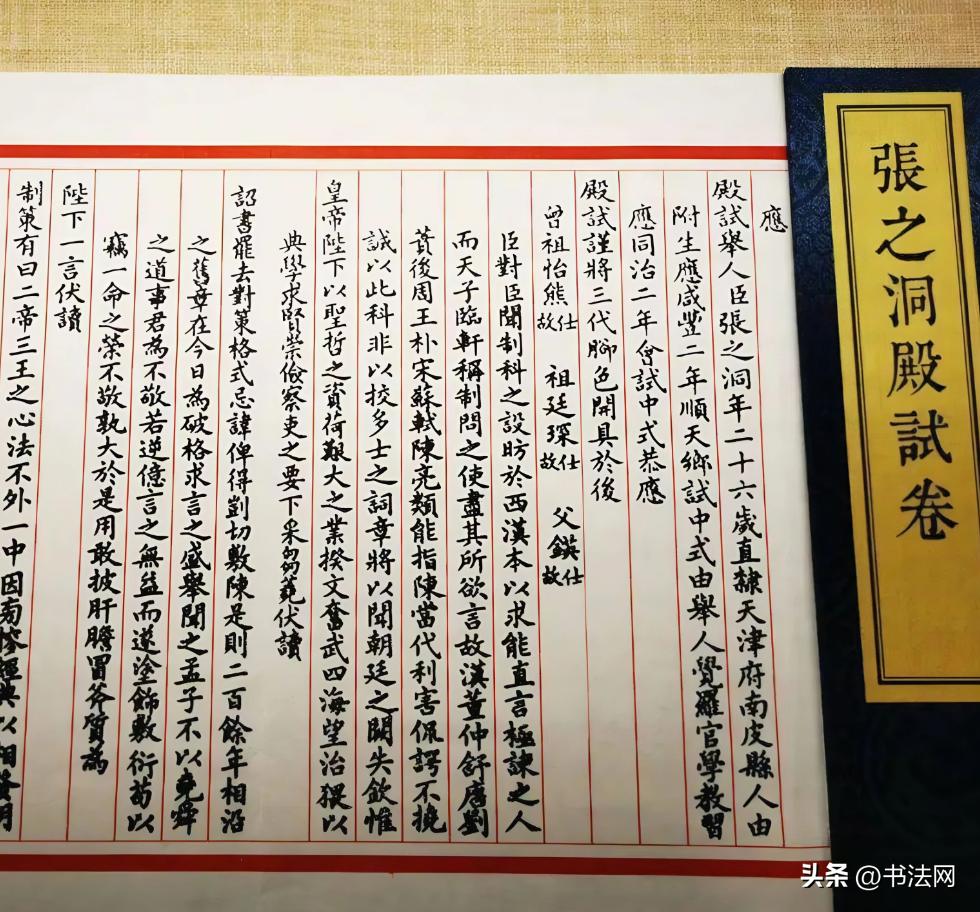 張之洞殿試卷
應
殿試舉人臣張之洞年二十六歲直隸天津府南皮縣人由
附生應咸豐二年順天鄉試中式由舉人覺羅官學教習
應同治二年會試中式恭應
殿試謹將三代腳色開具於後
曾祖怡熊故仕 祖廷琛故仕 父鍈故仕
臣對臣聞制科之設昉於西漢本以求能直言極諫之人
而天子臨軒稱制問之使盡其所欲言故漢董仲舒唐劉
蕡後周王朴宋蘇軾陳亮類能指陳當代利害侃諤不撓
誠以此科非以挍多士之詞章將以聞朝廷之闕失欽惟
皇帝陛下以聖哲之資荷艱大之業揆文奮武四海望治猥以
典學求賢崇儉察吏之要下采芻蕘伏讀
詔書罷去對策格式忌諱俾得剴切敷陳是則二百餘年相沿
之舊章在今日為破格求言之盛舉聞之孟子不以堯舜
之道事君為不敬若逆億言之無益而遂塗飾敷衍苟以
竊一命之榮不敬孰大於是用敢披肝膽冒斧質為
陛下一言伏讀
制策有曰二帝三王之心法不外一中因
經典以相發明
头条 @书法网